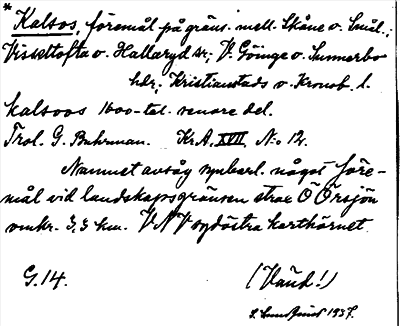 * Kalsos, föremål på gräns. mell. Skåne o. Smål.;
Visseltofta o. Hallaryd snr; V. Göinge o. Sunnerbo
hdr; Kristianstads o. Kronob. l.
Kalsoos 1600-tal. senare del.
Trol. G. Buhrman. Kr.A. XVII, No 12.
Namnet avsåg synbarl. något före-
mål vid landskapsgränsen strax Ö Örsjön
omkr. 3,3 km. VNV sydöstra karthörnet.
G.14. (Vänd!)
1937.